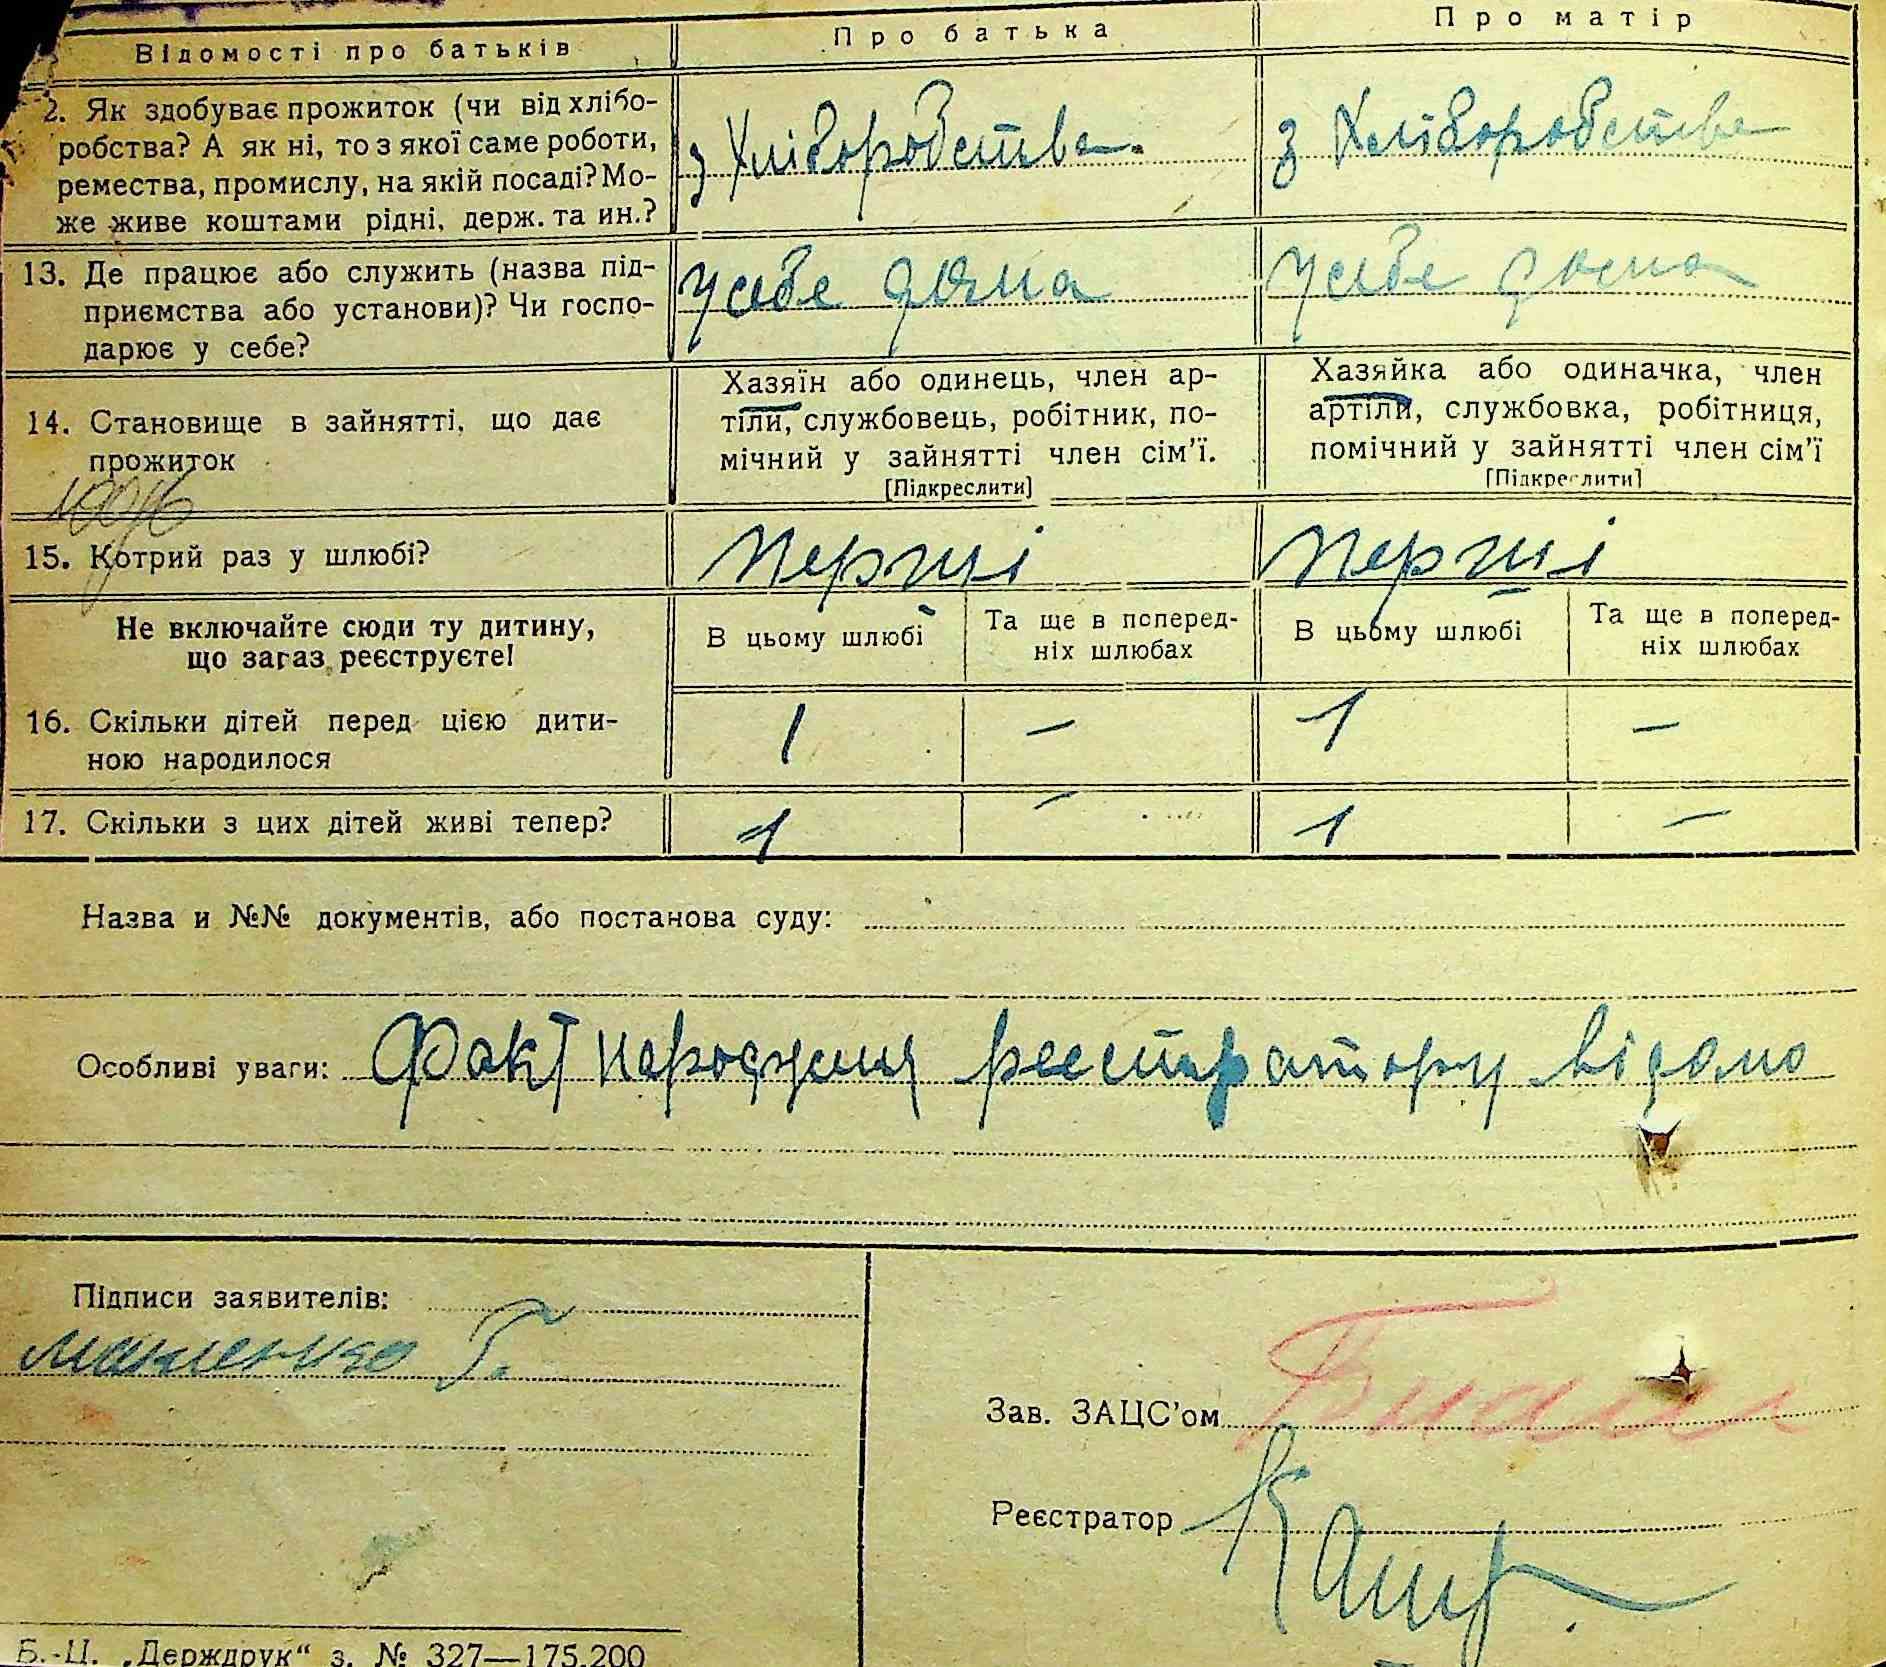 Відомості про батьків
Про батька
Про матір
2. Як здобуває прожиток (чи від хлібо-
робства? А як ні, то з якої саме роботи,
ремества, промислу, на якій посаді? Мо-
же живе коштами рідні, держ. та ин.?
з Хліборобства
з Хліборобства
13. Де працює або служить (назва під-
приємства або установи)? Чи госпо-
дарює у себе?
у себе дома
у себе дома
14. Становище в зайнятті, що дає
прожиток
Хазяїн або одинець, член ар-
тіли, службовець, робітник, по-
мічний у зайнятті член сім'ї.
[Підкреслити]
Хазяйка або одиначка, член
артіли, службовка, робітниця,
помічний у зайнятті член сім'ї
[Підкреслити]
15. Котрий раз у шлюбі?
перший
перший
Не включайте сюди ту дитину,
що зараз реєструєте!
В цьому шлюбі
Та ще в поперед-
ніх шлюбах
В цьому шлюбі
Та ще в поперед-
ніх шлюбах
16. Скільки дітей перед цією дити-
ною народилося
1 — 1 —
17. Скільки з цих дітей живі тепер?
1 — 1 —
Назва и №№ документів, або постанова суду:
Особливі уваги: Факт народження реєстратору відомо
Підписи заявителів:
Г.
Зав. ЗАЦС'ом
Реєстратор
Б.-Ц. „Держдрук“ з. № 327—175.200